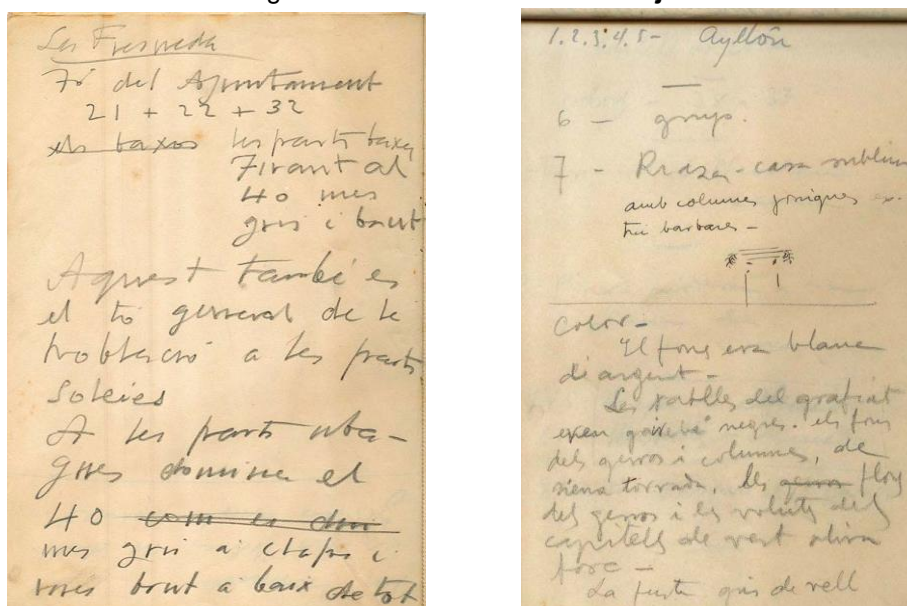 La Fresneda
To del Ajuntament
21 + 22 + 32
els baxos les parts baxes
Tirant al
40 mes
gris i brut
Aquest també es
el to general de la
població a les parts
Soleies
A les parts uba-
gues domina el
40 com es diu
mes gris a claps i
mes brut a baix de tot
1.2.3.4.5- Ayllón
6 - grup.
7 - Riaza - casa sublim
amb columnes joniques
bárbares -
Color -
El fons era blanc
d'argent -
Les ratlles del grafiat
eren gairebé negres. els fons
dels gerros i columnes, de
siena torrada, les gerros flors
dels gerros i les volutes dels
capitells de vert oliva
fosc -
La fusta gris de vell